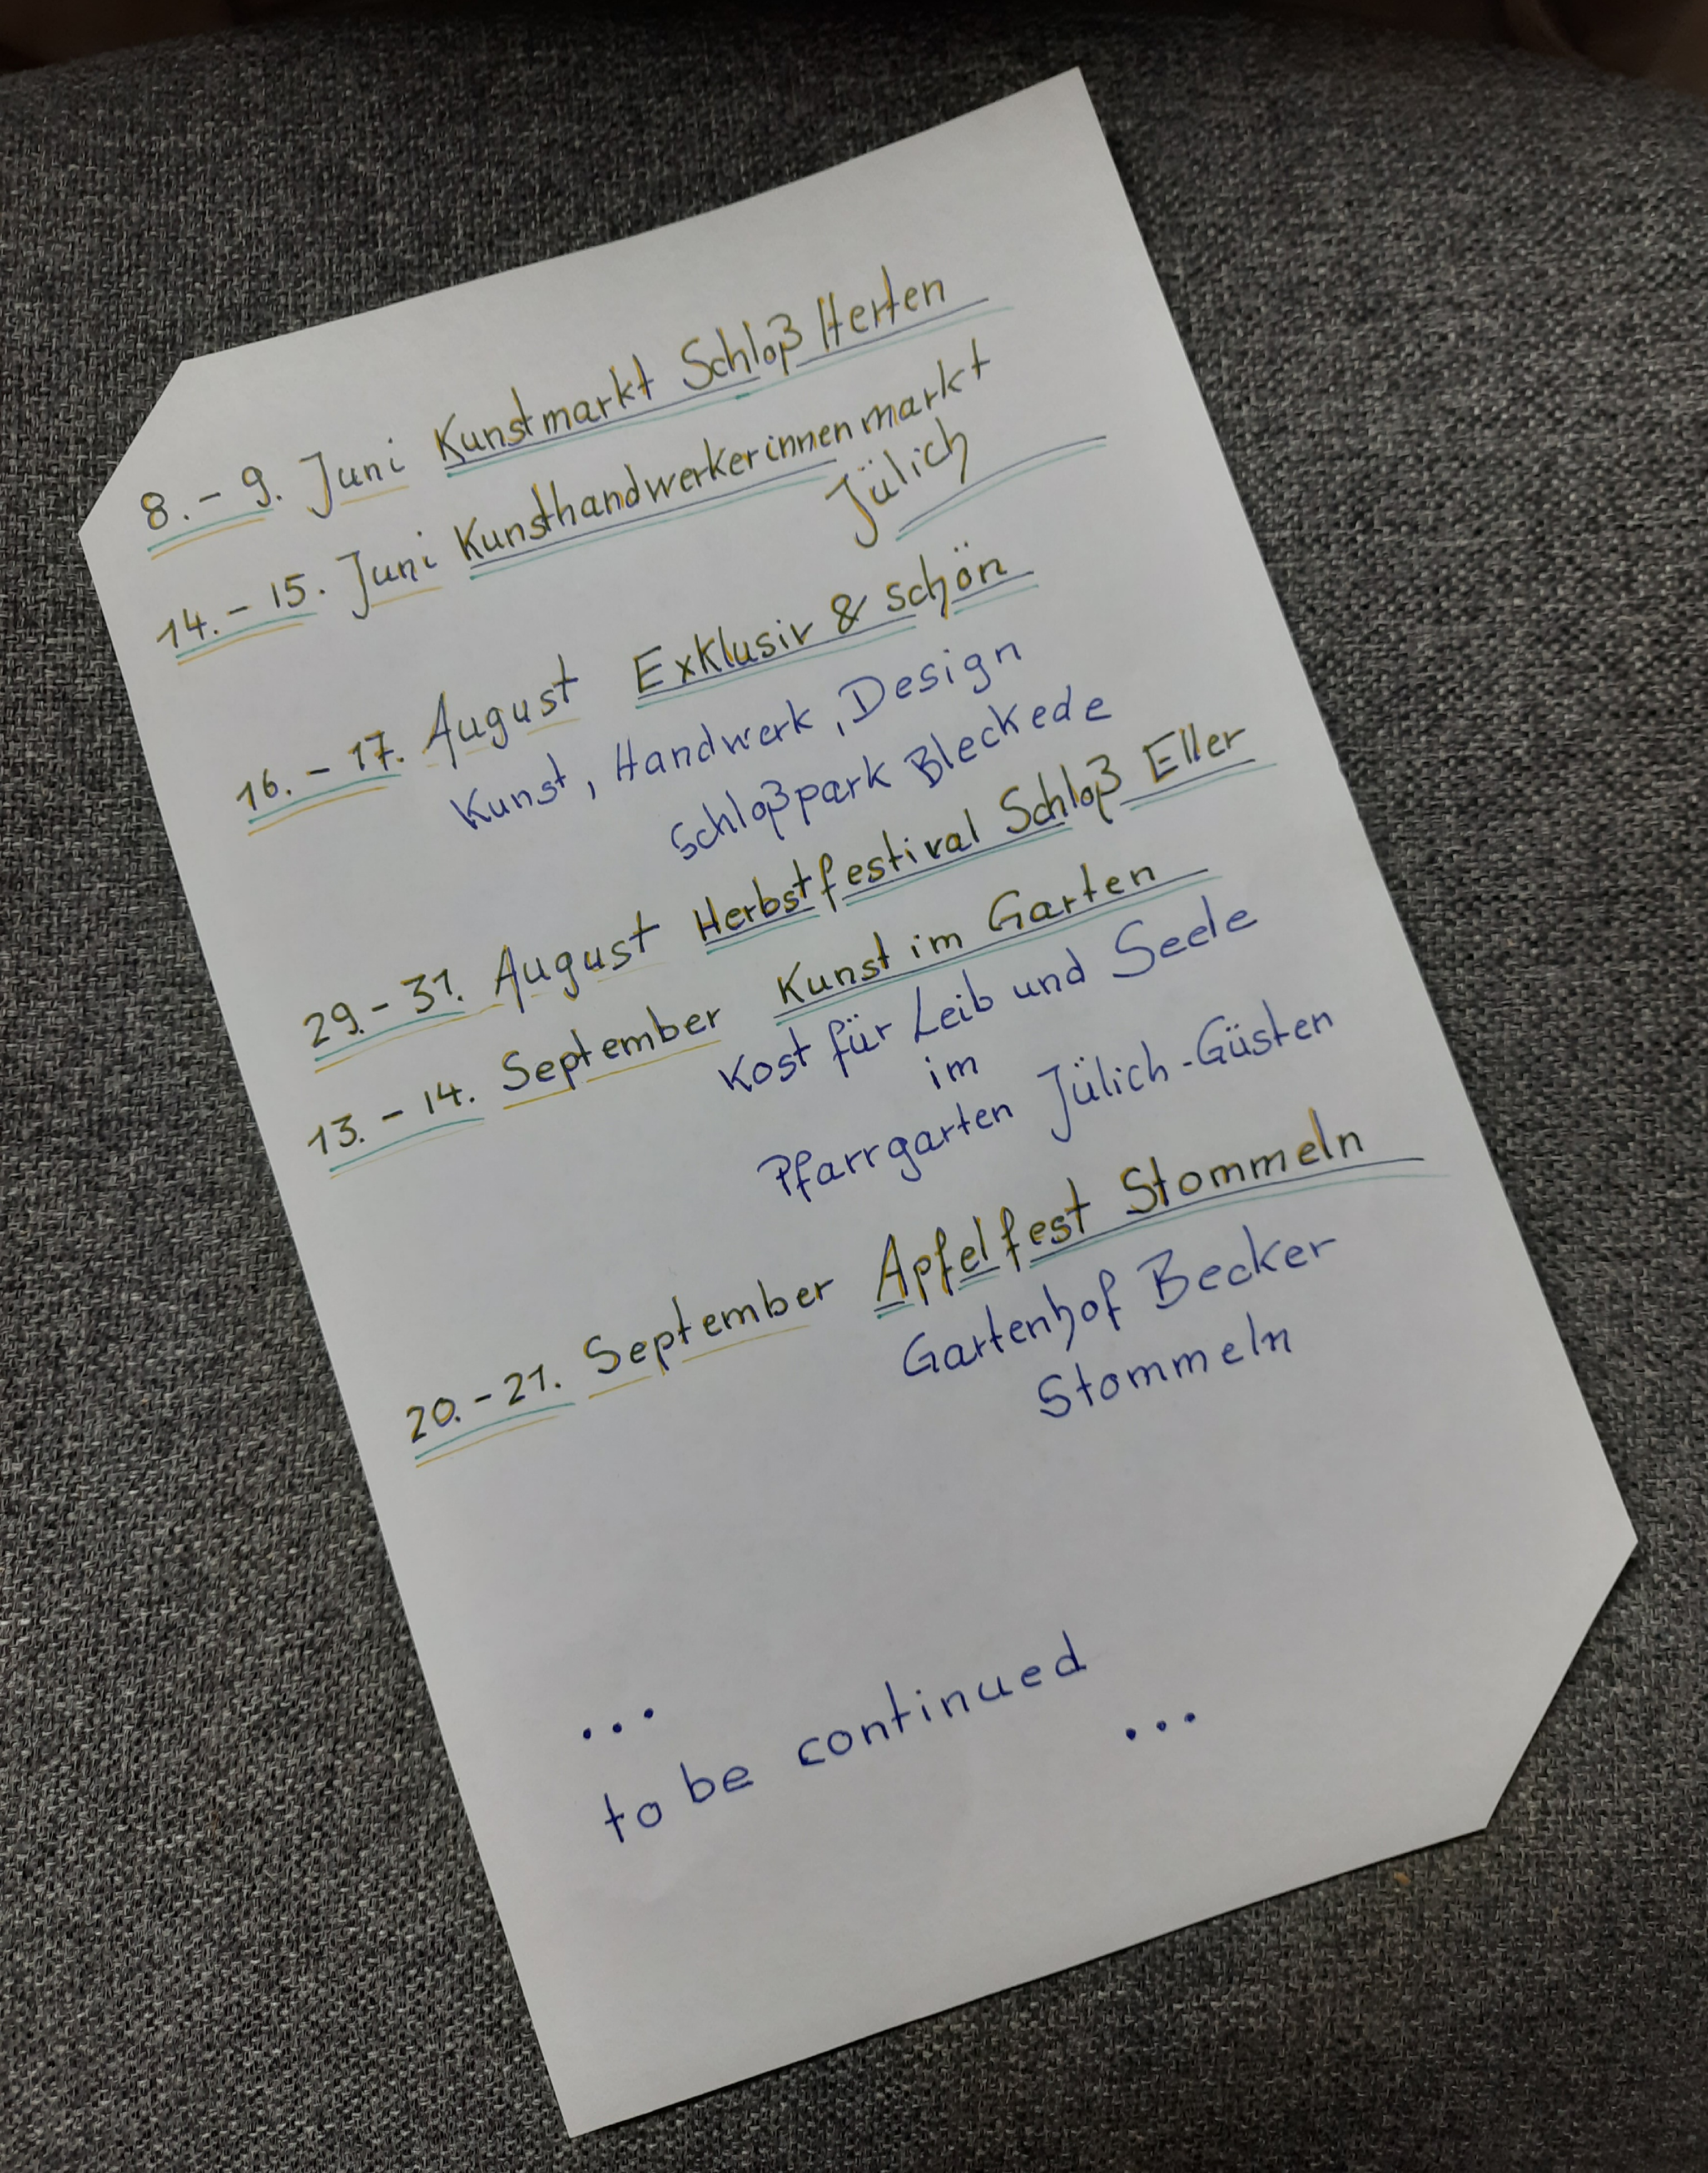 8. - 9. Juni Kunstmarkt Schloß Herten
14. - 15. Juni Kunsthandwerkerinnenmarkt
Jülich
16. - 17. August Exklusiv & schön
Kunst, Handwerk, Design
Schloßpark Bleckede
29. - 31. August Herbstfestival Schloß Eller
13. - 14. September Kunst im Garten
Kost für Leib und Seele
im
Pfarrgarten Jülich-Güsten
20. - 21. September Apfelfest Stommeln
Gartenhof Becker
Stommeln
...
to be continued
...